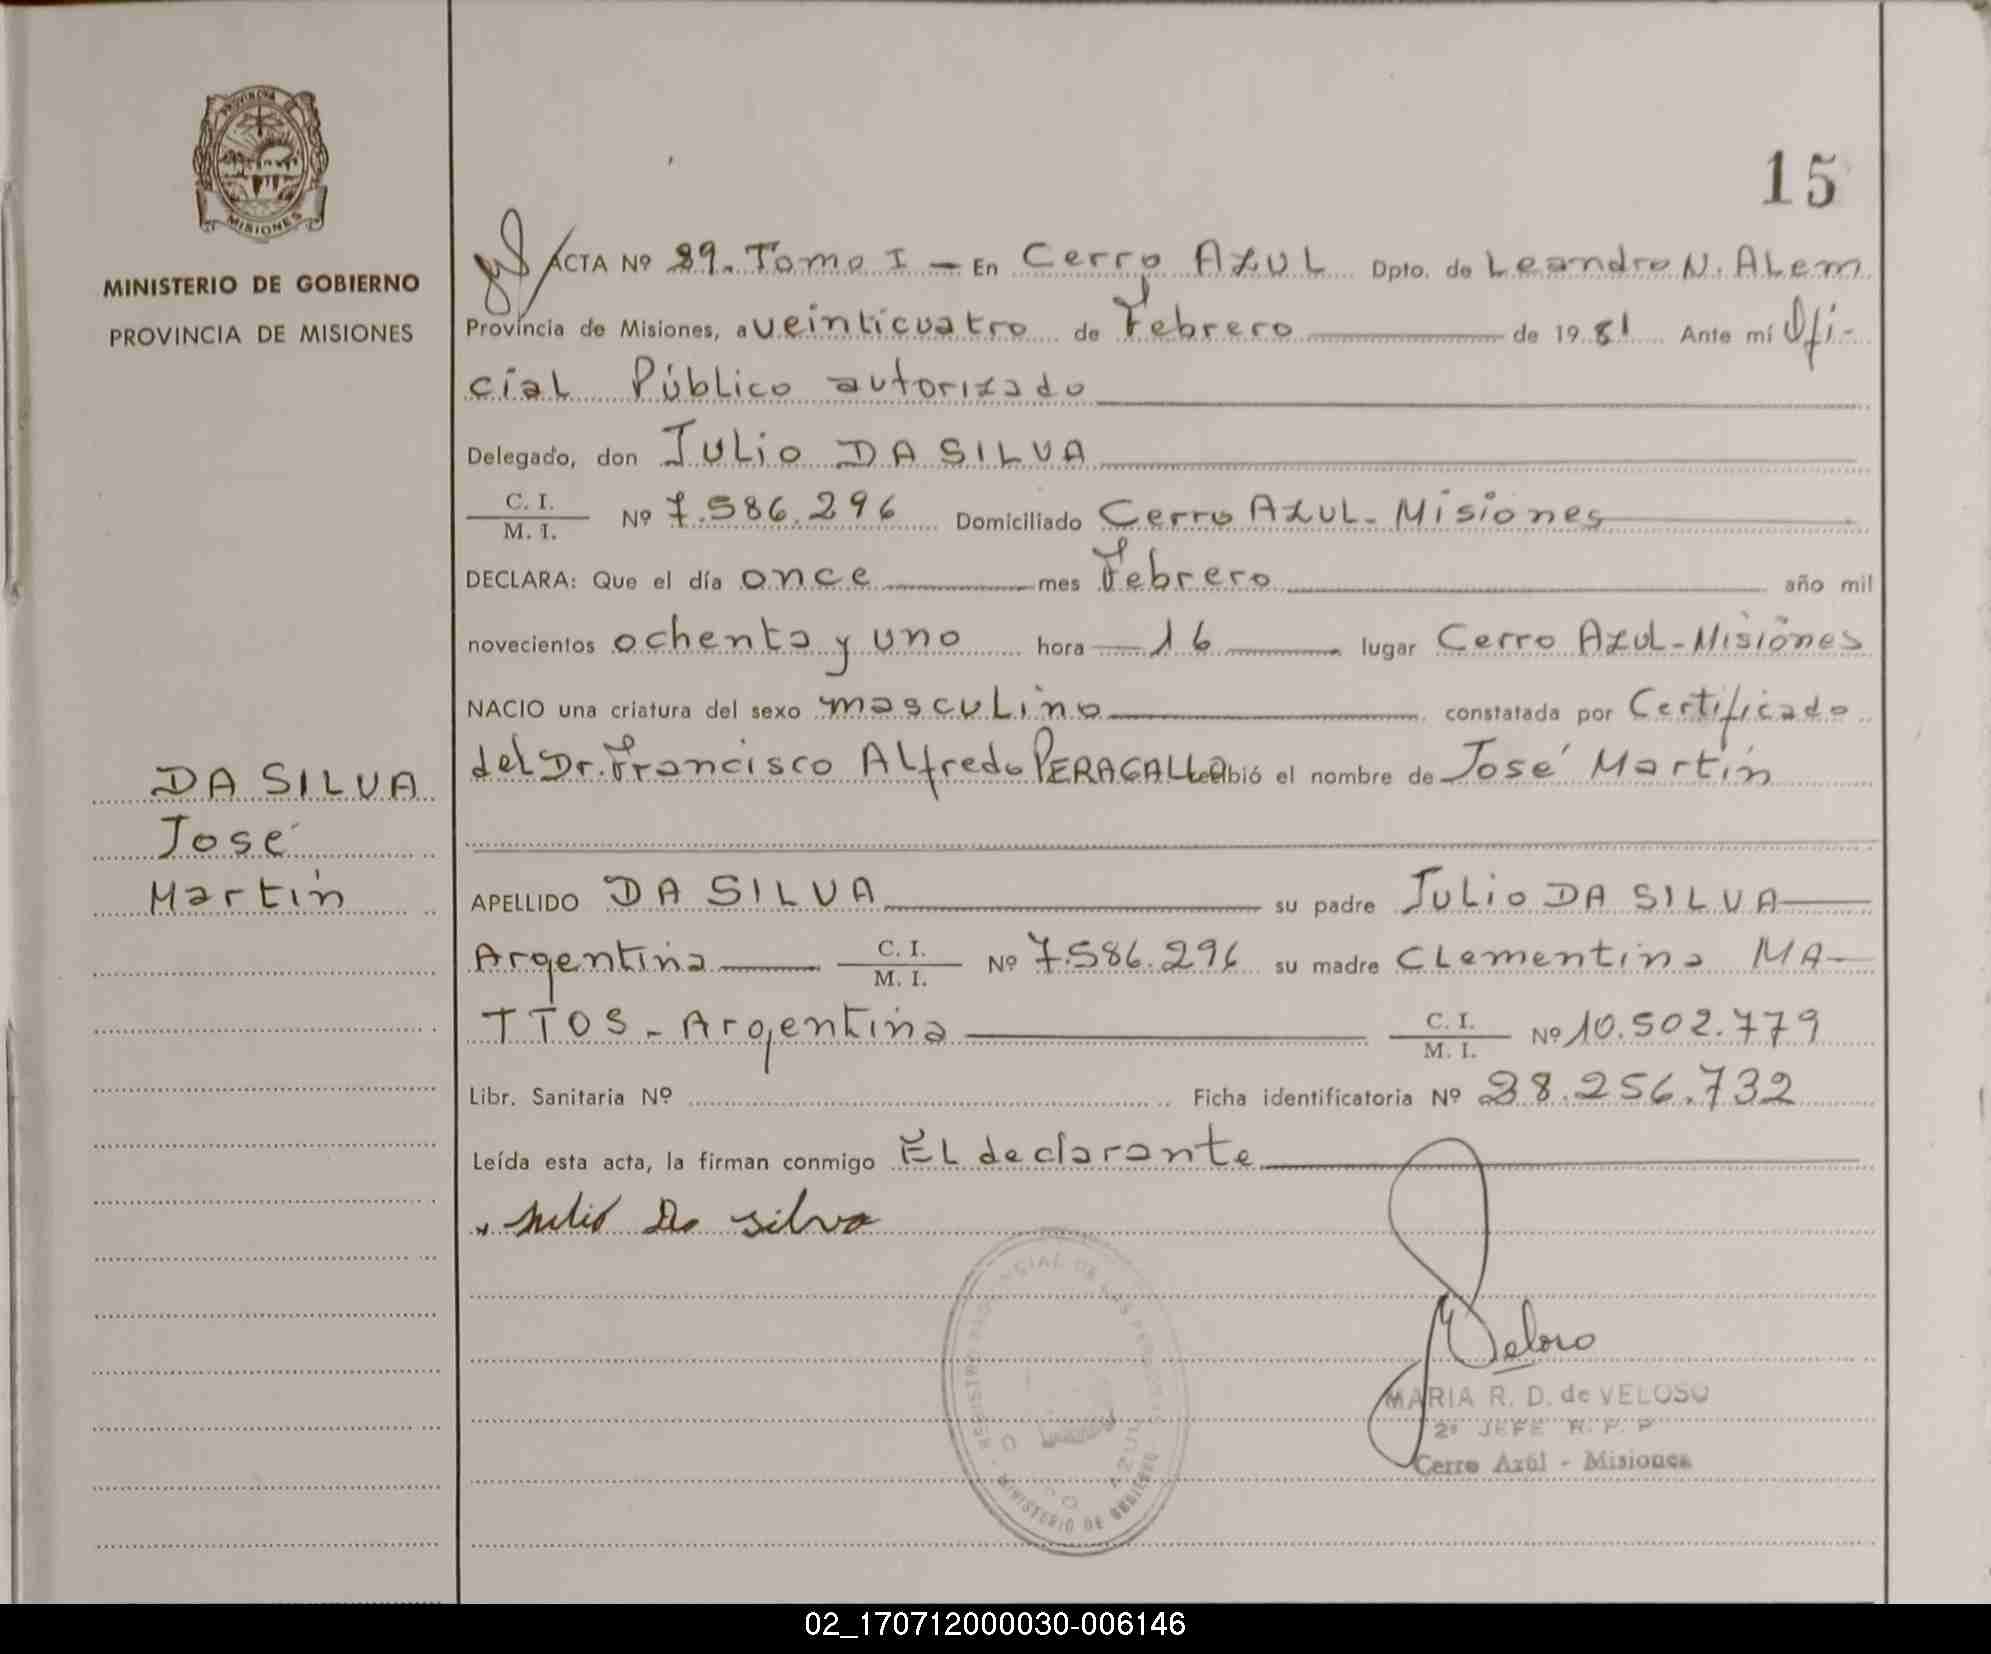 PROVINCIA
MISIONES
MINISTERIO DE GOBIERNO
PROVINCIA DE MISIONES
DA SILVA
José
Martín
15
ACTA Nº 29. Tomo I - En Cerro Azul Dpto. de Leandro N. Alem
Provincia de Misiones, a veinticuatro de Febrero de 1981 Ante mí Ofi-
cial Público autorizado
Delegado, don Julio DA SILVA
C. I.
M. I. Nº 7.586.296 Domiciliado Cerro Azul - Misiones
DECLARA: Que el día once mes Febrero año mil
novecientos ochenta y uno hora 16 lugar Cerro Azul - Misiones
NACIO una criatura del sexo masculino constatada por Certificado
del Dr. Francisco Alfredo PERAGALLO recibió el nombre de José Martín
APELLIDO DA SILVA su padre Julio DA SILVA
Argentina C. I.
M. I. Nº 7.586.296 su madre Clementina MA-
TTOS - Argentina C. I.
M. I. Nº 10.502.779
Libr. Sanitaria Nº Ficha identificatoria Nº 28.256.732
Leída esta acta, la firman conmigo El declarante
x Julio Da Silva
Veloso
MARIA R. D. de VELOSO
2º JEFE R. P. P
Cerro Azúl - Misiones
REGISTRO PROVINCIAL DE LAS PERSONAS
MINISTERIO DE GOBIERNO
02_170712000030-006146